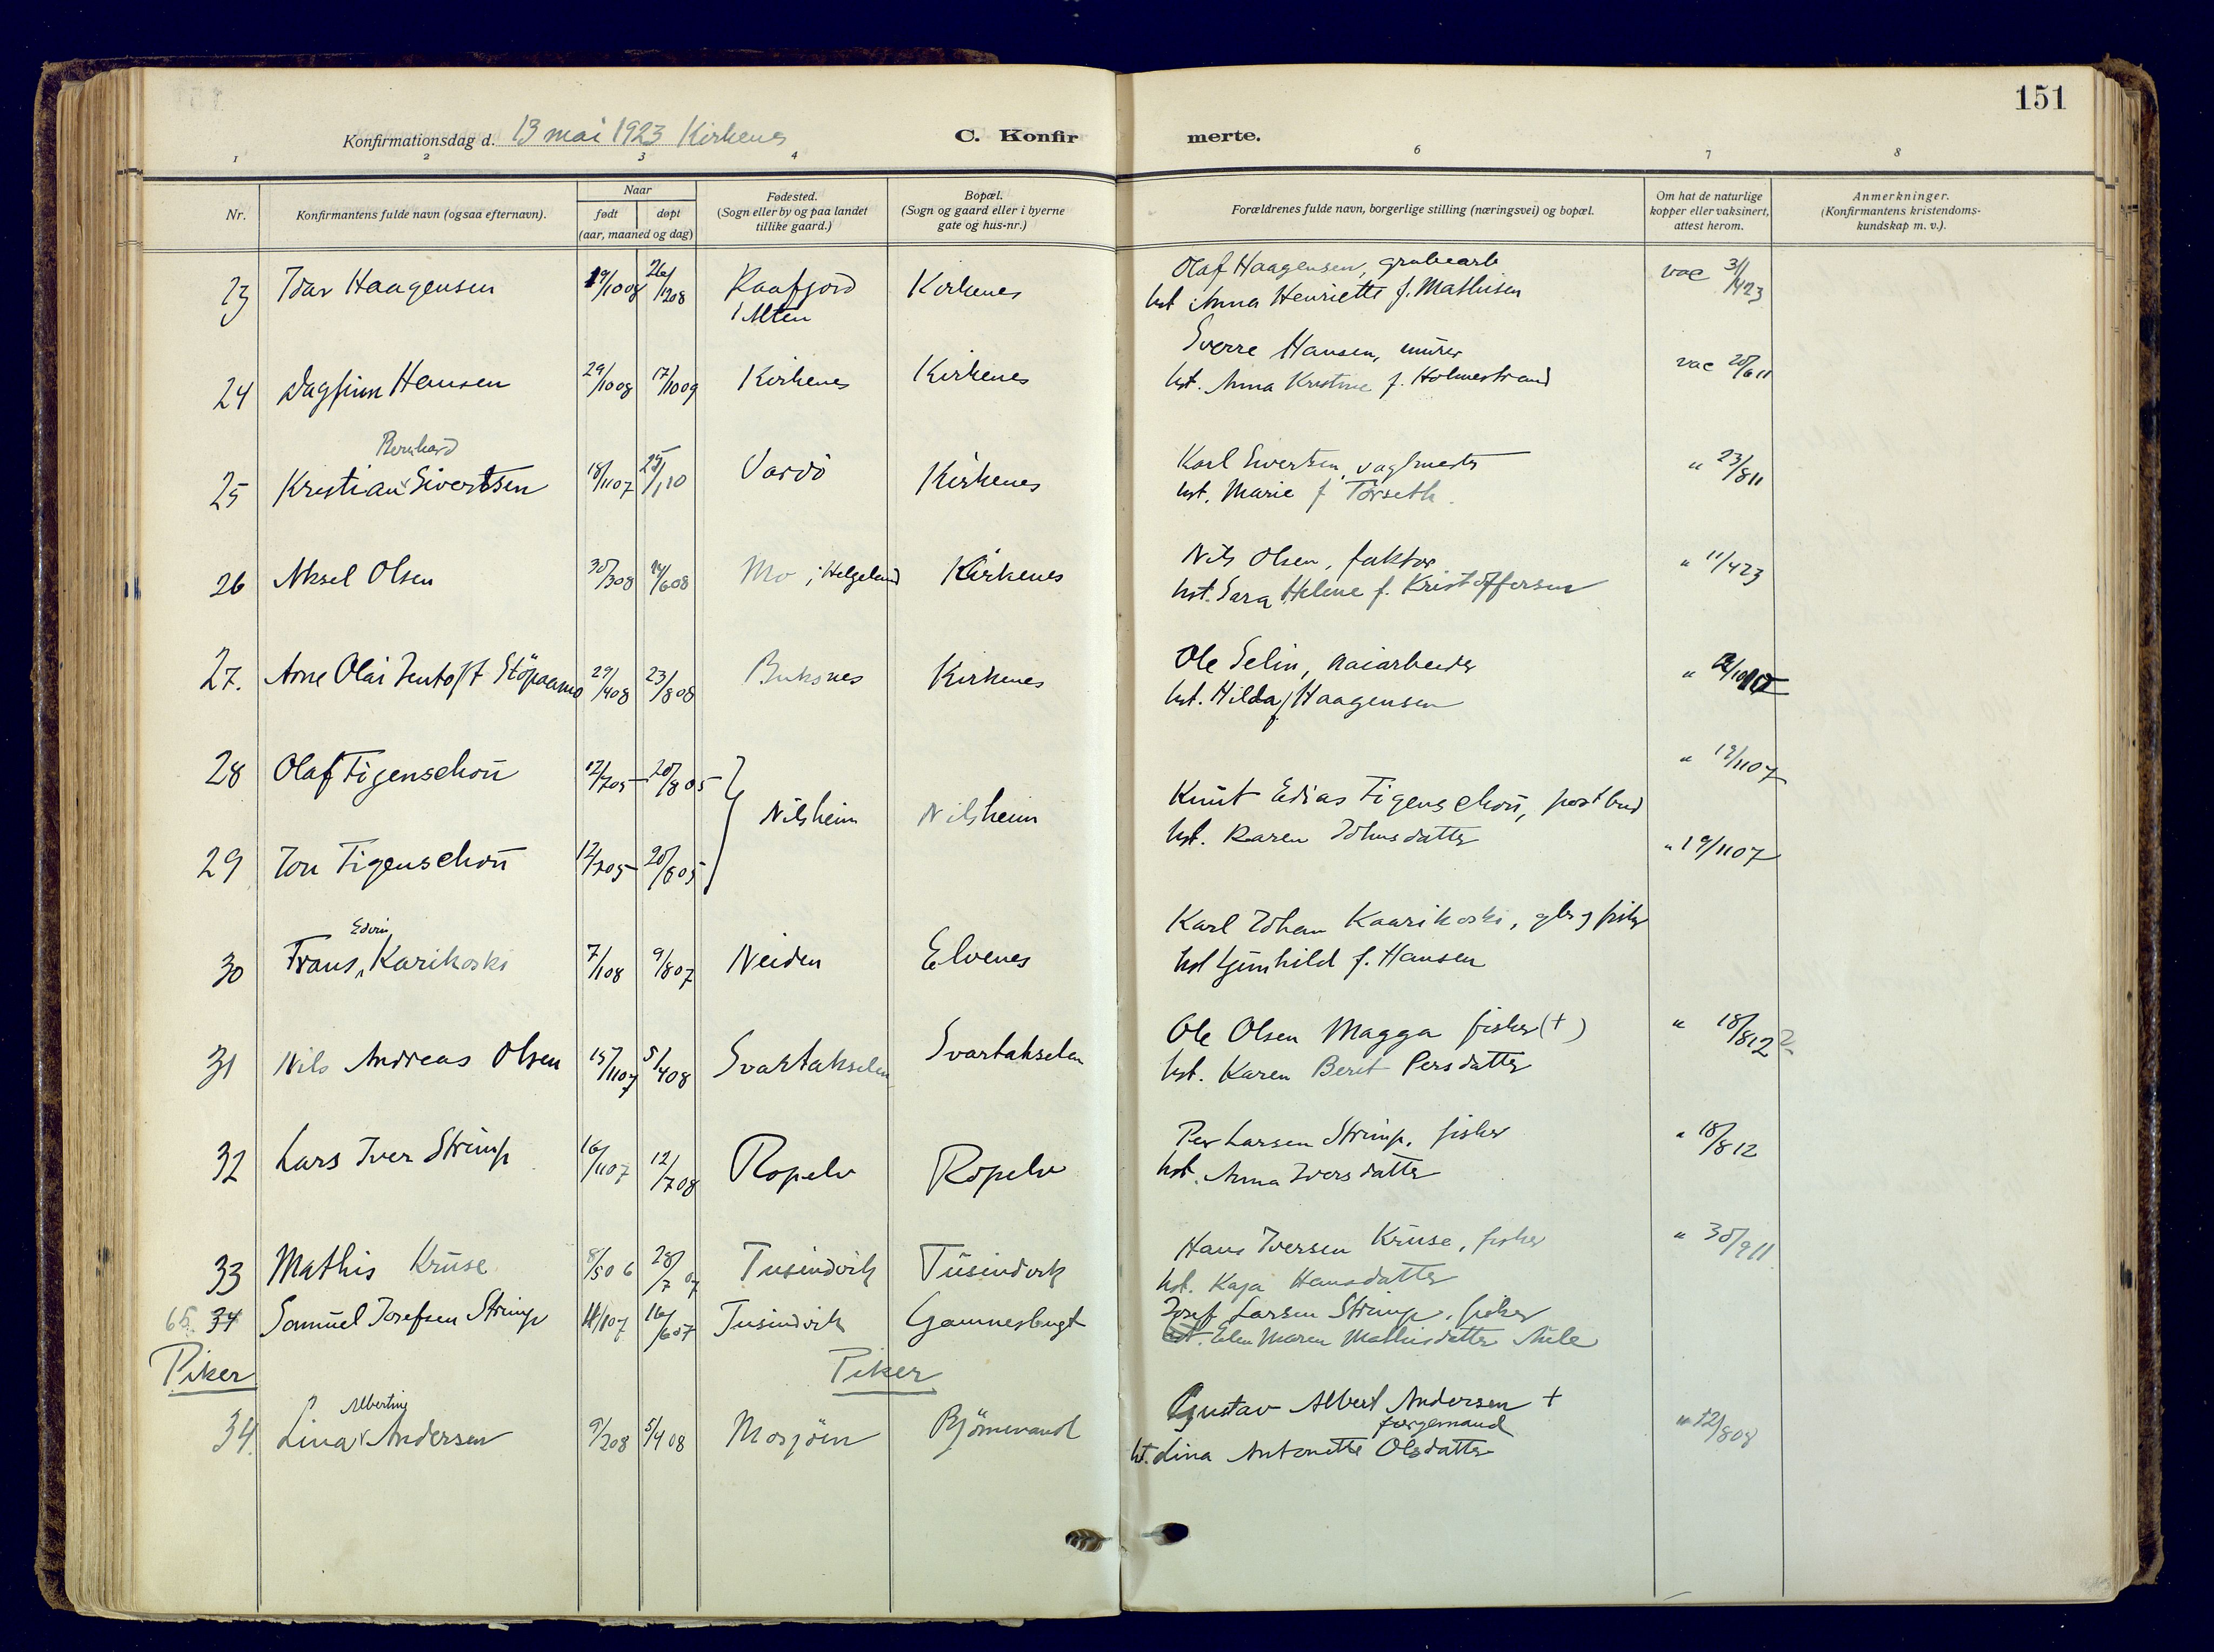 151
Konfirmationsdag d. 13 mai 1923 Kirkenes
C. Konfirmerte.
1 2 3 4 6 7 8
Nr.
Konfirmantens fulde navn (ogsaa efternavn).
Naar
født døpt
(aar, maaned og dag)
Fødested.
(Sogn eller by og paa landet
tillike gaard.)
Bopæl.
(Sogn og gaard eller i byerne
gate og hus-nr.)
Forældrenes fulde navn, borgerlige stilling (næringsvei) og bopæl.
Om hat de naturlige
kopper eller vaksinert,
attest herom.
Anmerkninger.
(Konfirmantens kristendoms-
kundskap m. v.).
23 Idar Haagensen 19/10 08 26/12 08 Kaafjord Kirkenes Olaf Haagensen, grubearb vac 3/4 23
i Alten hst Anna Henriette f. Mathisen
Sverre Hansen, murer
24 Dagfinn Hansen 29/10 08 17/10 09 Kirkenes Kirkenes hst. Anna Kristine f. Holmestrand vac 20/6 11
Bernhard
25 Kristian Sivertsen 18/11 07 25/1 10 Vardö Kirkenes Karl Sivertsen, vagtmester " 23/8 11
hst. Marie f Torseth
26 Aksel Olsen 30/3 08 14/6 08 Mo i Helgeland Kirkenes Nils Olsen, faktor " 11/4 23
hst. Sara Helene f. Kristoffersen
27. Arne Olai Jentoft Stöpaamo 29/4 08 23/8 08 Buksnes Kirkenes Ole Selin, kaiarbeider
hst. Hilda f Haagensen
28 Olaf Figenschou 12/7 05 20/8 05 " 19/11 07
Nilsheim Nilsheim Knut Edias Figenschou, postbud
hst. Karen Johnsdatter
29 Jon Figenschou 12/7 05 20/8 05 " 19/11 07
Edvin
30 Frans Karikoski 7/1 08 9/8 07 Neiden Elvenes Karl Johan Kaarikoski, gbr g fisker
hst Gunhild f. Hansen
31 Nils Andreas Olsen 15/11 07 5/4 08 Svartakselen Svartakselen Ole Olsen Magga fisker (+) " 18/8 12
hst. Karen Berit Persdatter
32 Lars Iver Strimp 16/11 07 12/7 08 Ropelv Ropelv Per Larsen Strimp, fisker " 18/8 12
hst. Anna Iversdatter
33 Mathis Kruse 8/5 06 28/7 07 Tusindvik Tusindvik Hans Iversen Kruse, fisker " 30/9 11
hst. Kaja Hansdatter
65. 34 Samuel Josefsen Strimp 11/1 07 16/6 07 Tusindvik Gamnesbugt Josef Larsen Strimp, fisker
hst. Elen Maren Mathisdatter
Piker Piker
Albertine
34. Lina Andersen 9/2 08 5/4 08 Mosjöen Björnevand Gustav Albert Andersen + " 12/8 08
færgemand
hst. Lina Antonette Olsdatter